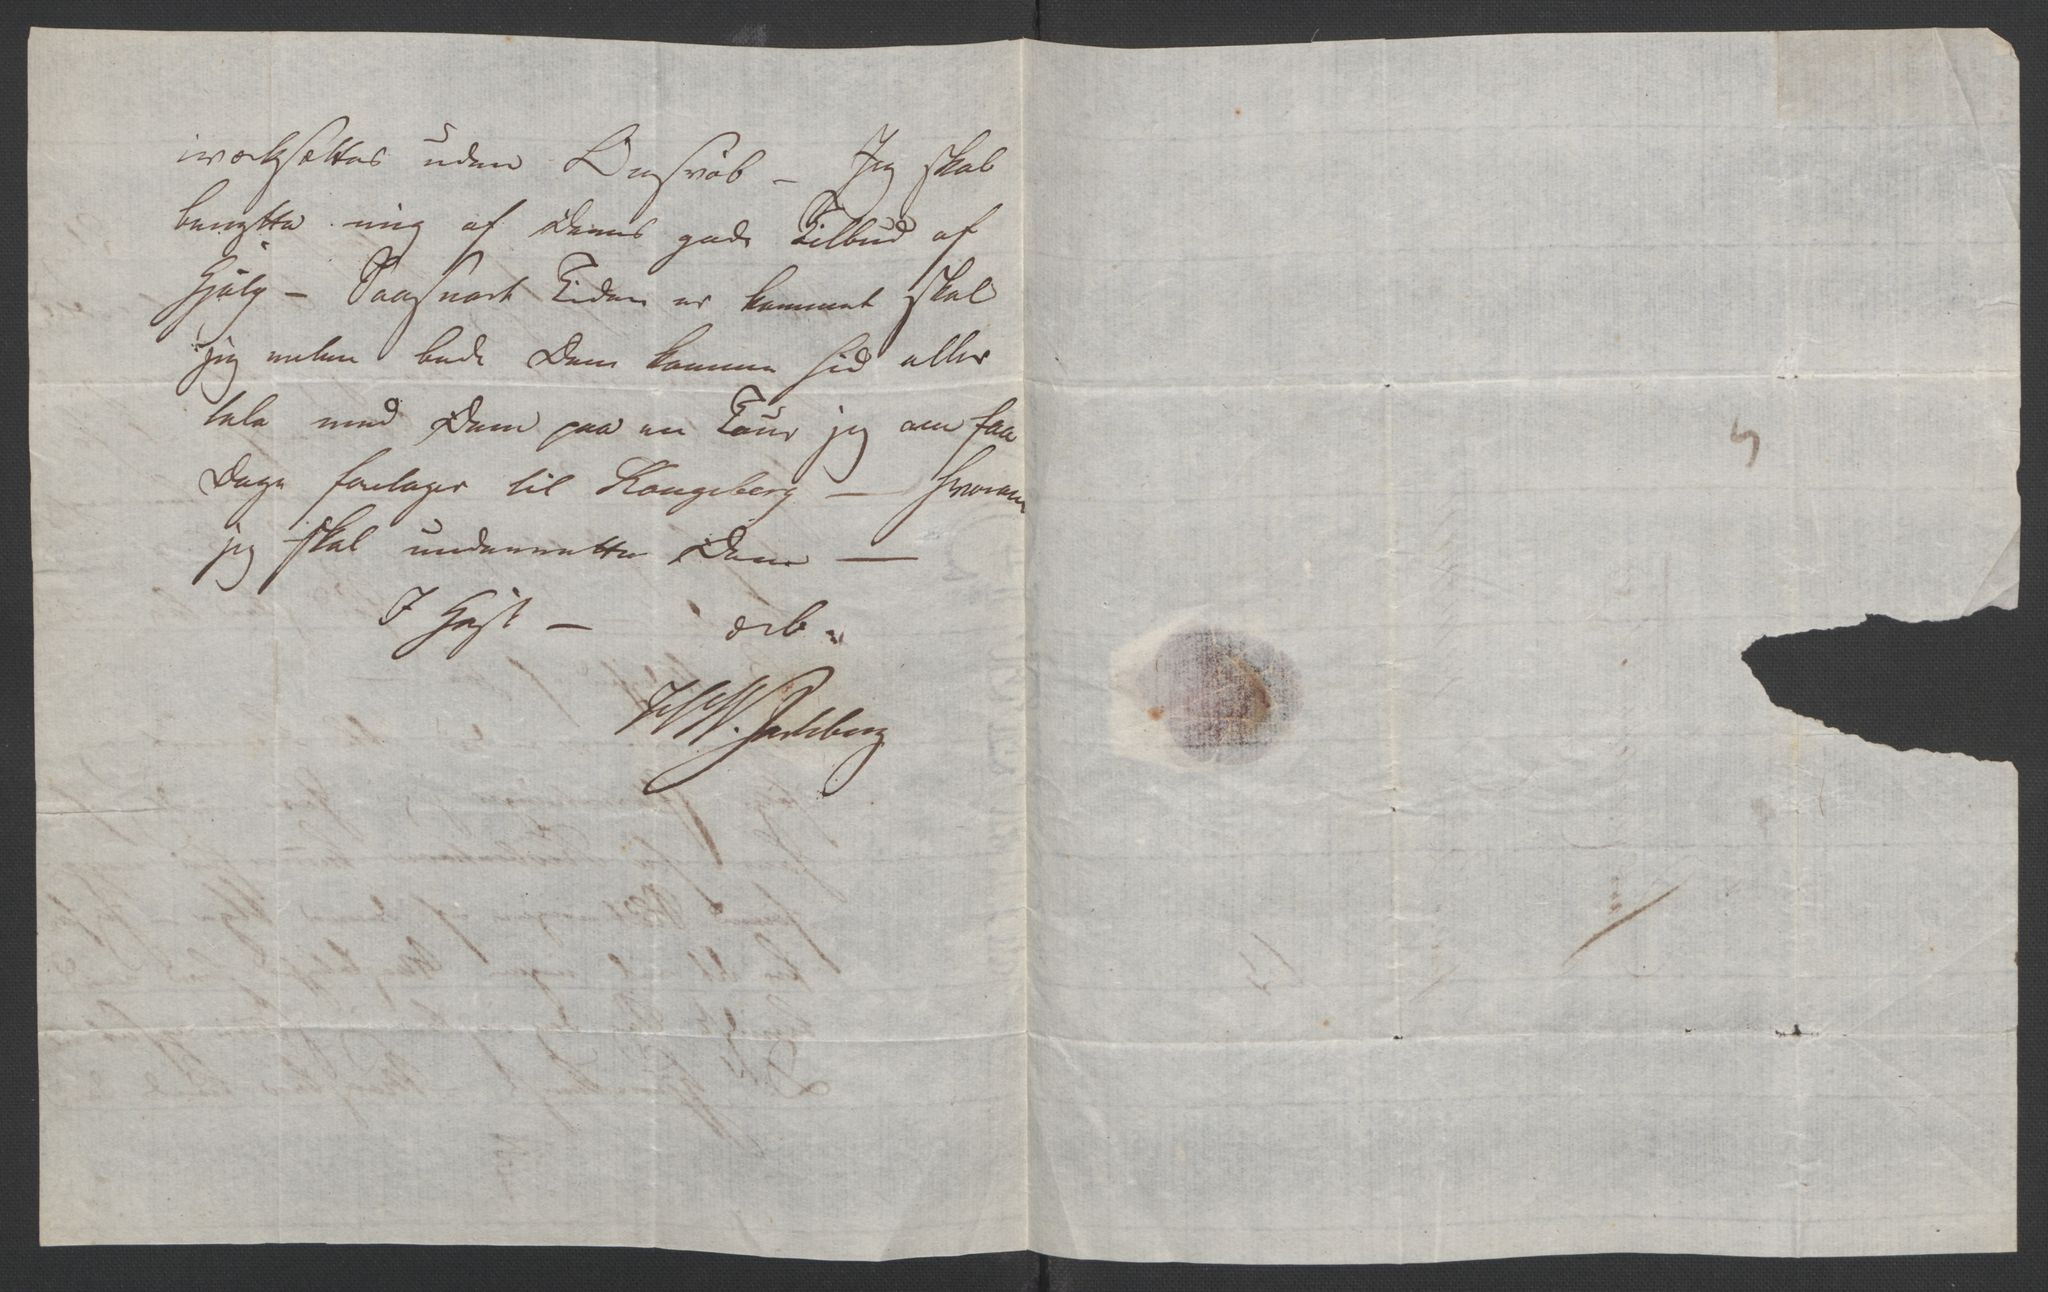 iværksættes uden Ophold – Jeg skal
benytte mig af Deres gode Tilbud af
Hjelp – Saasnart Tiden er kommet skal
jeg enten bede Dem komme hid eller
tale med Dem paa en Tour jeg om faa
Dage foretager til Kongsberg – hvorom
jeg skal underrette Dem –
I Hast – ærb.
Jarlsberg